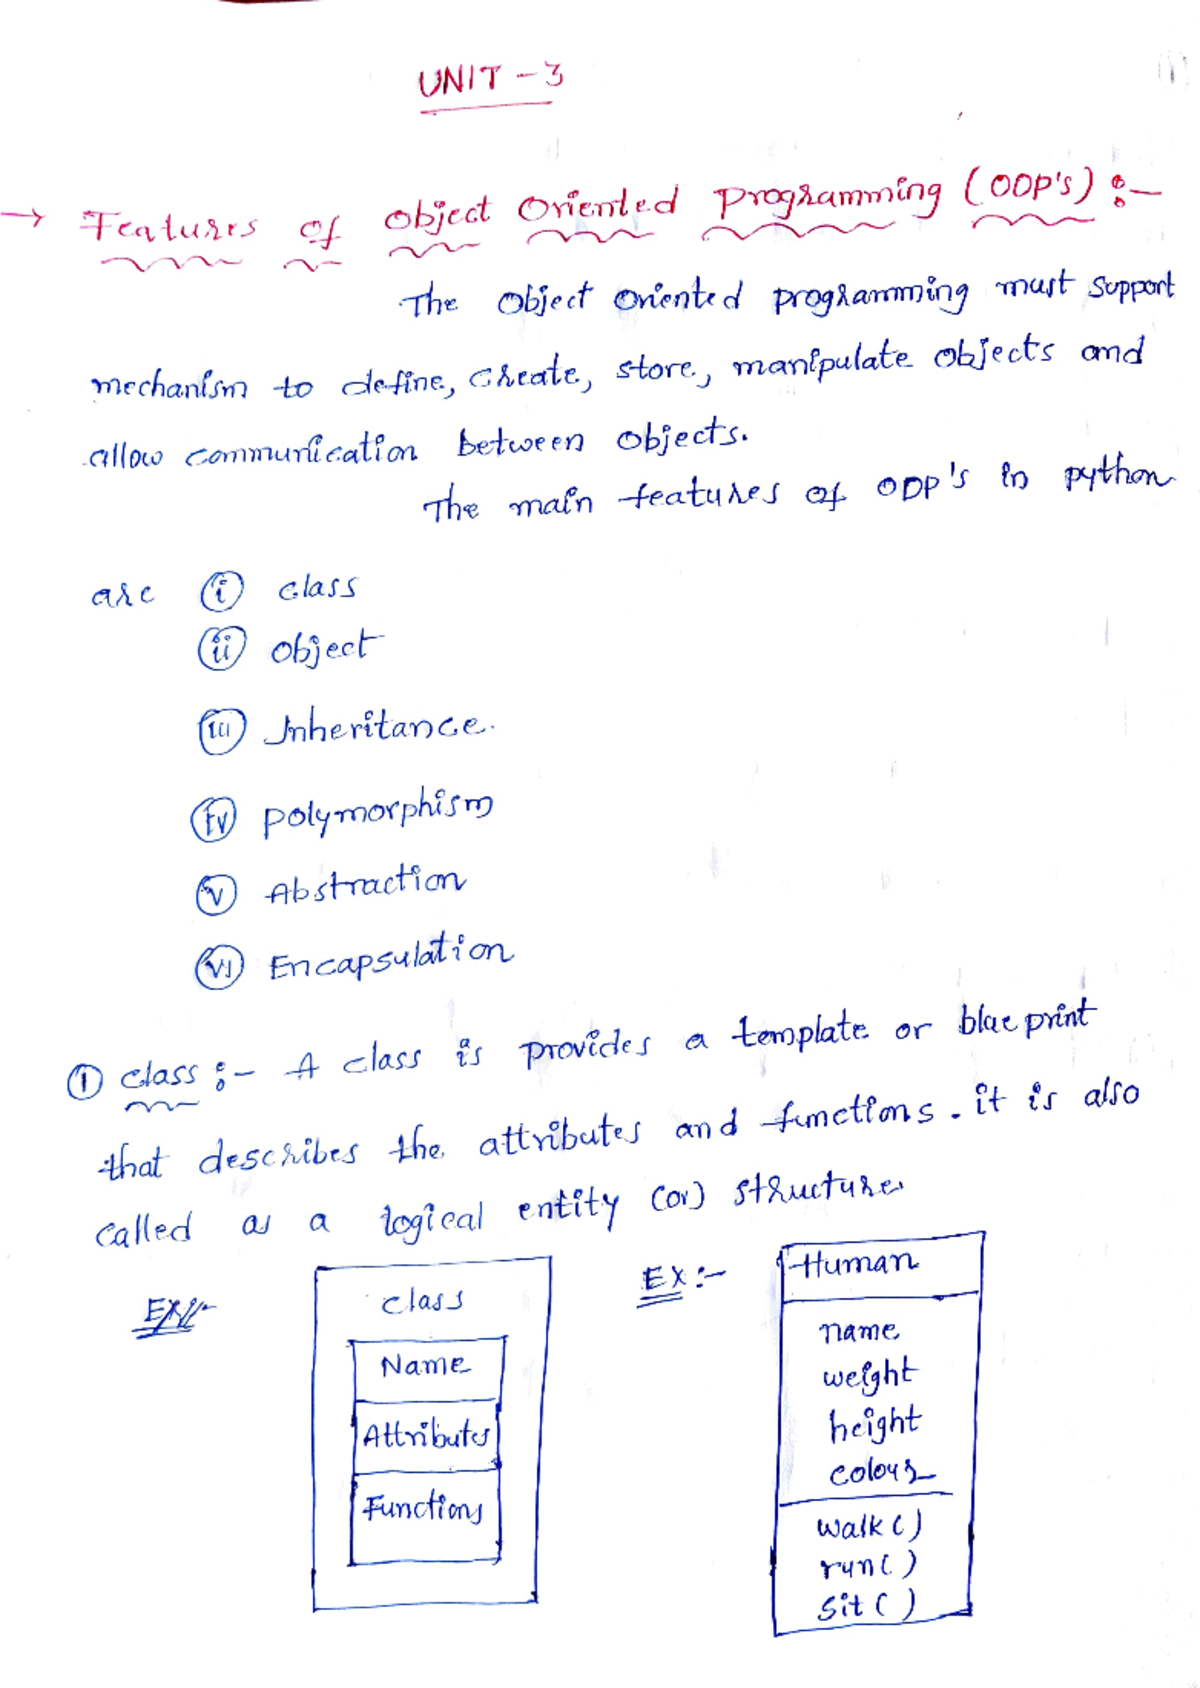 UNIT - 3
→ Features of Object Oriented Programming (OOP's) :-
The Object Oriented programming must Support
mechanism to define, create, store, manipulate objects and
allow communication between objects.
The main features of OOP's in python
are (i) class
(ii) object
(iii) Inheritance.
(iv) polymorphism
(v) Abstraction
(vi) Encapsulation
① class :- A class is provides a template or blue print
that describes the attributes and functions. it is also
called as a logical entity (or) structure
Ex:-
class
Name
Attributes
Functions
Ex :-
Human
name
weight
height
colour
walk ()
run()
Sit ()